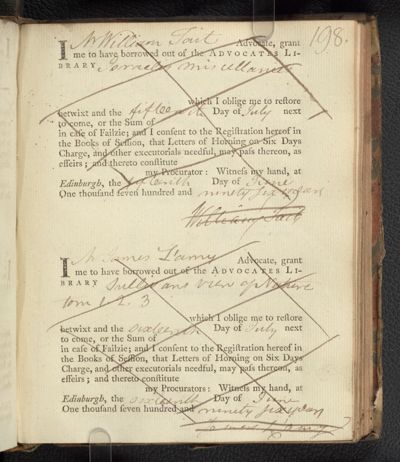 198.
I Mr William Tait Advocate, grant
me to have borrowed out of the ADVOCATES LI-
BRARY Miscellanies
which I oblige me to reſtore
betwixt and the fifteenth Day of July next
to come, or the Sum of
in caſe of Failzie; and I conſent to the Regiſtration hereof in
the Books of Seſſion, that Letters of Horning on Six Days
Charge, and other executorials needful, may paſs thereon, as
effeirs; and thereto conſtitute
my Procurator: Witneſs my hand, at
Edinburgh, the fifteenth Day of June
One thouſand ſeven hundred and ninety six years
William Tait
I Mr James L'amy Advocate, grant
me to have borrowed out of the ADVOCATES LI-
BRARY Sullivans view of Nature
tom 1. 2. 3
which I oblige me to reſtore
betwixt and the sixteenth Day of July next
to come, or the Sum of
in caſe of Failzie; and I conſent to the Regiſtration hereof in
the Books of Seſſion, that Letters of Horning on Six Days
Charge, and other executorials needful, may paſs thereon, as
effeirs; and thereto conſtitute
my Procurators: Witneſs my hand, at
Edinburgh, the sixteenth Day of June
One thouſand ſeven hundred and ninety six years
James L'amy